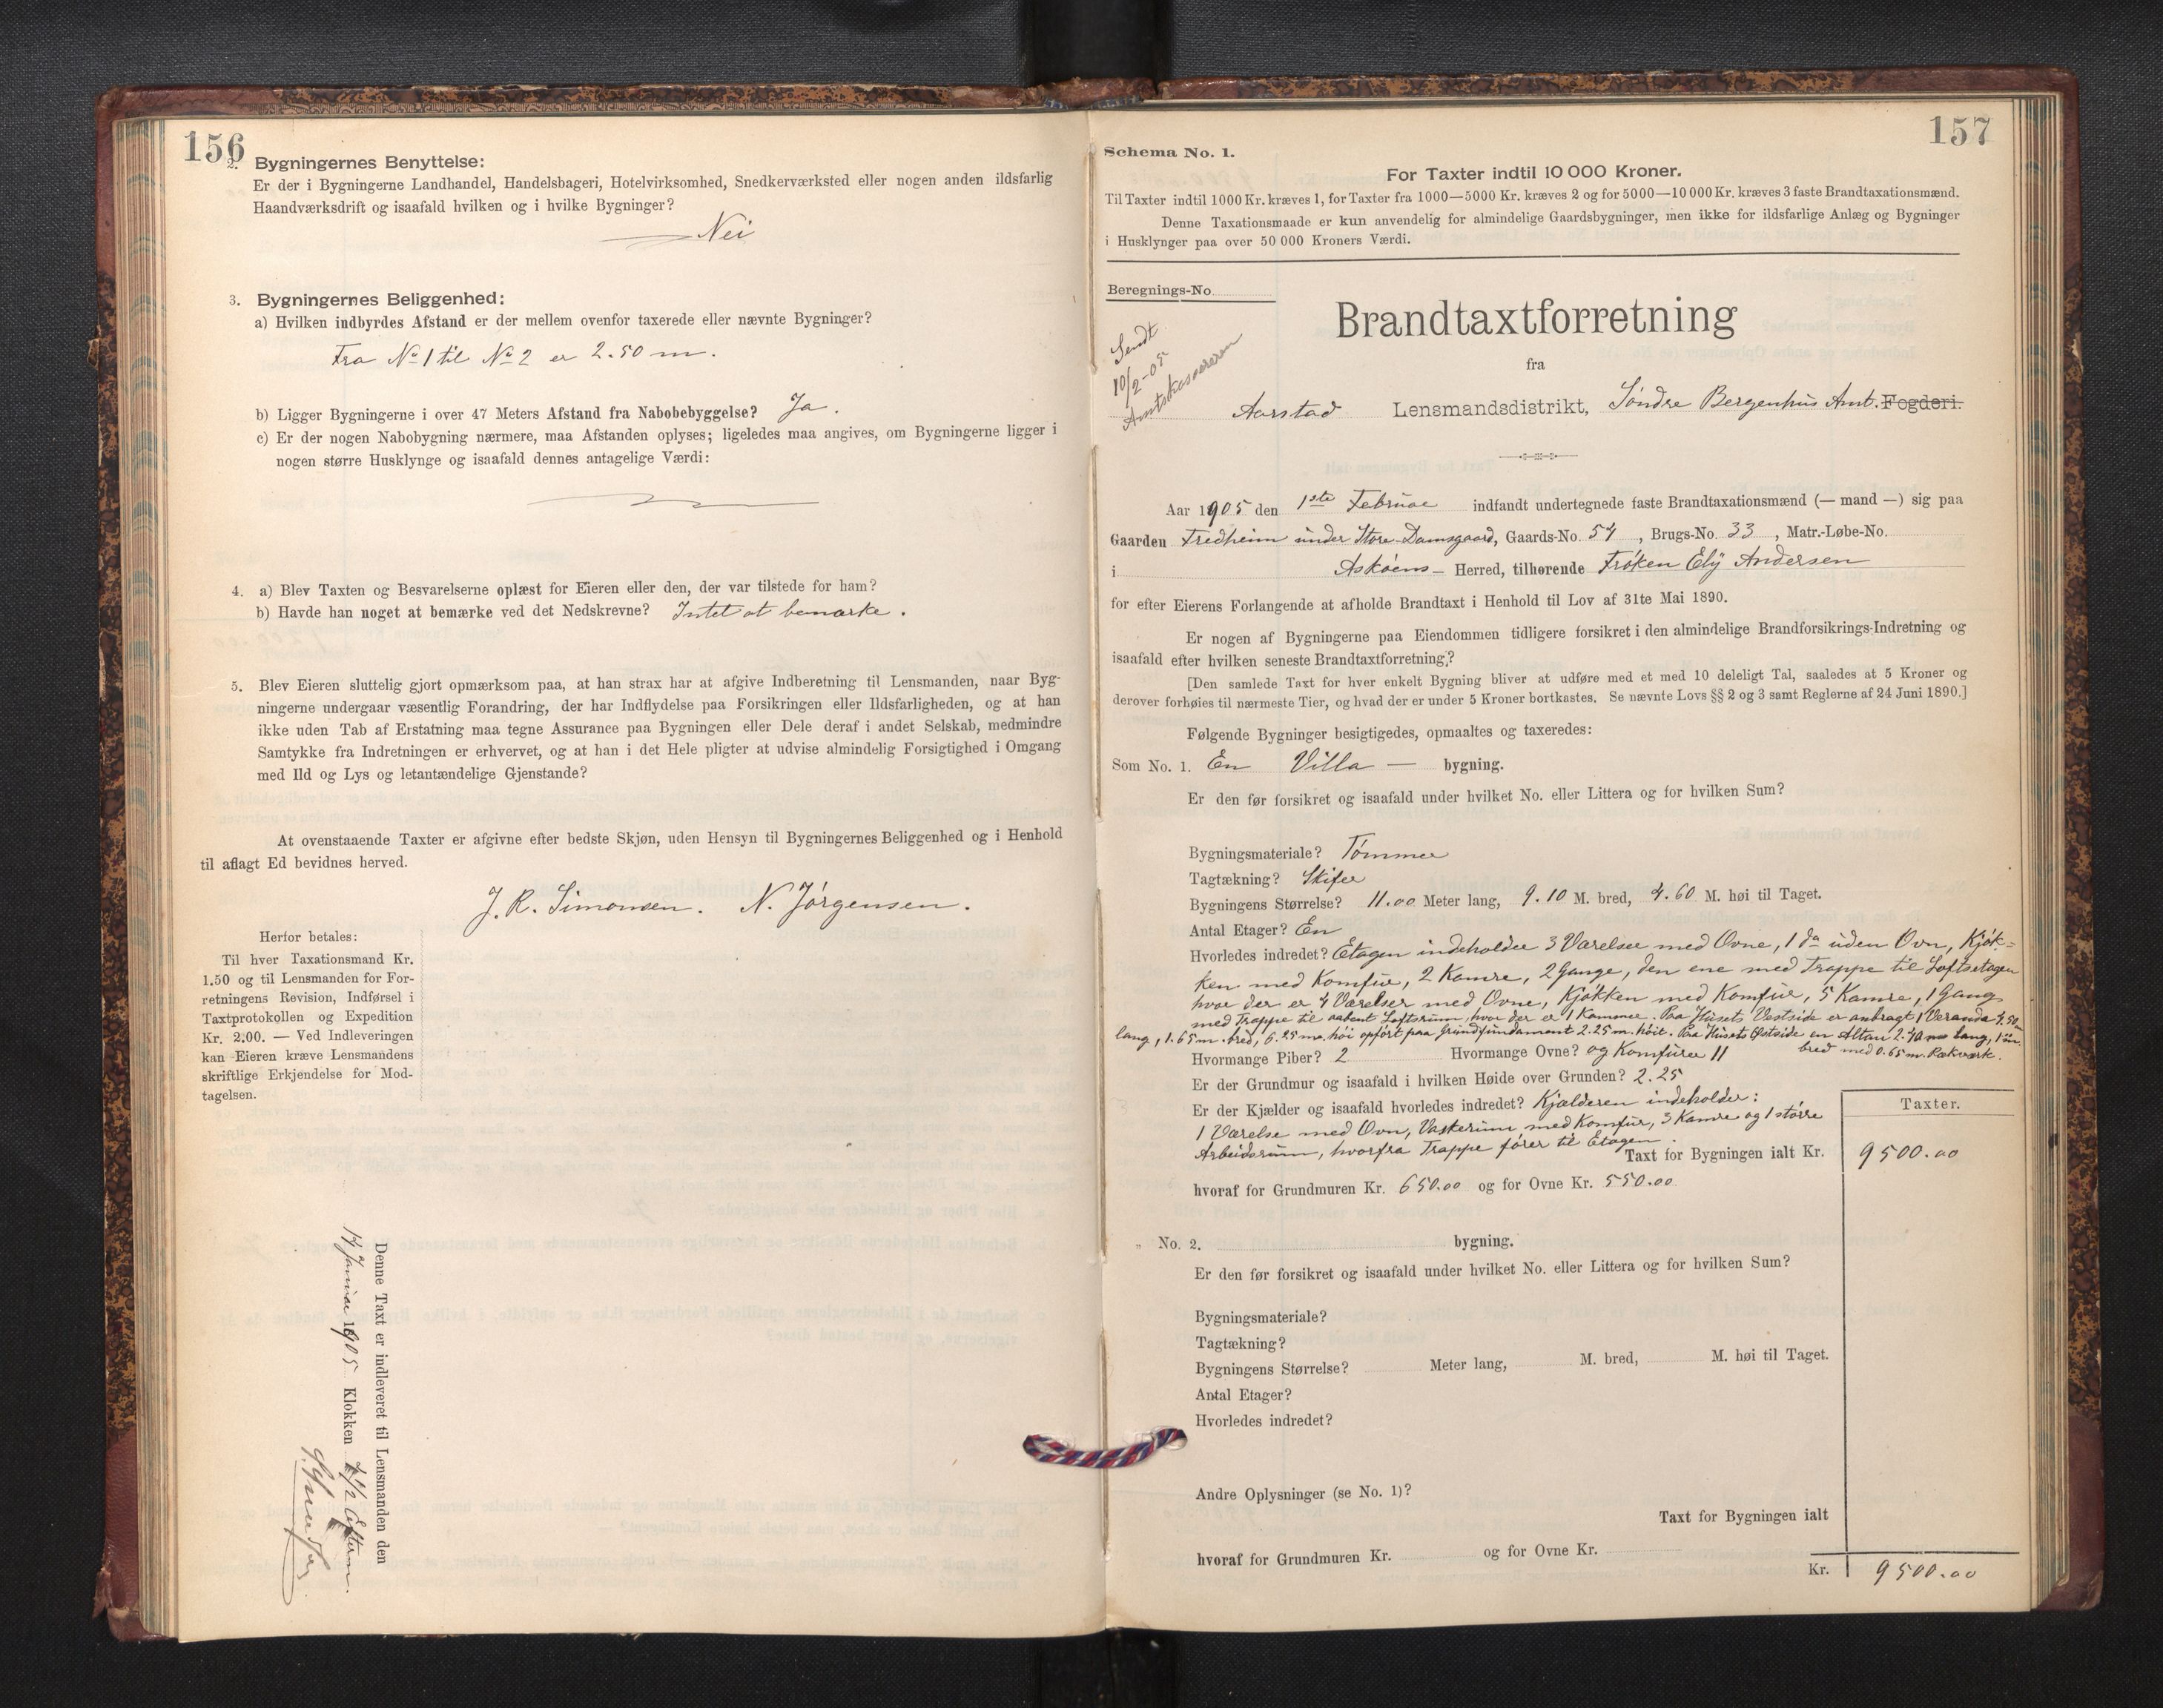 156
2. Bygningernes Benyttelse:
Er der i Bygningerne Landhandel, Handelsbageri, Hotelvirksomhed, Snedkerværksted eller nogen anden ildsfarlig
Haandværksdrift og isaafald hvilken og i hvilke Bygninger?
Nei
3. Bygningernes Beliggenhed:
a) Hvilken indbyrdes Afstand er der mellem ovenfor taxerede eller nævnte Bygninger?
Fra No 1 til No 2 er 2.50 m.
b) Ligger Bygningerne i over 47 Meters Afstand fra Nabobebyggelse? Ja.
c) Er der nogen Nabobygning nærmere, maa Afstanden oplyses; ligeledes maa angives, om Bygningerne ligger i
nogen større Husklynge og isaafald dennes antagelige Værdi:
4. a) Blev Taxten og Besvarelserne oplæst for Eieren eller den, der var tilstede for ham?
b) Havde han noget at bemærke ved det Nedskrevne? Intet at bemærke.
5. Blev Eieren sluttelig gjort opmærksom paa, at han strax har at afgive Indberetning til Lensmanden, naar Byg-
ningerne undergaar væsentlig Forandring, der har Indflydelse paa Forsikringen eller Ildsfarligheden, og at han
ikke uden Tab af Erstatning maa tegne Assurance paa Bygningen eller Dele deraf i andet Selskab, medmindre
Samtykke fra Indretningen er erhvervet, og at han i det Hele pligter at udvise almindelig Forsigtighed i Omgang
med Ild og Lys og letantændelige Gjenstande?
At ovenstaaende Taxter er afgivne efter bedste Skjøn, uden Hensyn til Bygningernes Beliggenhed og i Henhold
til aflagt Ed bevidnes herved.
J. R. Simonsen. N. Jørgensen.
Herfor betales:
Til hver Taxationsmand Kr.
1.50 og til Lensmanden for For-
retningens Revision, Indførsel i
Taxtprotokollen og Expedition
Kr. 2.00. — Ved Indleveringen
kan Eieren kræve Lensmandens
skriftlige Erkjendelse for Mod-
tagelsen.
Denne Taxt er indleveret til Lensmanden den
Januar 1905 Klokken 1/2 Efterm.
157
Schema No. 1.
For Taxter indtil 10 000 Kroner.
Til Taxter indtil 1000 Kr. kræves 1, for Taxter fra 1000—5000 Kr. kræves 2 og for 5000—10 000 Kr. kræves 3 faste Brandtaxationsmænd.
Denne Taxationsmaade er kun anvendelig for almindelige Gaardsbygninger, men ikke for ildsfarlige Anlæg og Bygninger
i Husklynger paa over 50 000 Kroners Værdi.
Beregnings-No.
Brandtaxtforretning
Sendt
10/2-05
Amtskassereren
fra
Aarstad Lensmandsdistrikt, Søndre Bergenhus Amt. Fogderi.
Aar 1905 den 1ste Februar indfandt undertegnede faste Brandtaxationsmænd (— mand —) sig paa
Gaarden Fredheim under Store-Damsgaard, Gaards-No. 54, Brugs-No. 33, Matr.-Løbe-No.
i Askøens - Herred, tilhørende Frøken Ely Andersen
for efter Eierens Forlangende at afholde Brandtaxt i Henhold til Lov af 31te Mai 1890.
Er nogen af Bygningerne paa Eiendommen tidligere forsikret i den almindelige Brandforsikrings-Indretning og
isaafald efter hvilken seneste Brandtaxtforretning?
[Den samlede Taxt for hver enkelt Bygning bliver at udføre med et med 10 deleligt Tal, saaledes at 5 Kroner og
derover forhøies til nærmeste Tier, og hvad der er under 5 Kroner bortkastes. Se nævnte Lovs §§ 2 og 3 samt Reglerne af 24 Juni 1890.]
Følgende Bygninger besigtigedes, opmaaltes og taxeredes:
Som No. 1. En Villa — bygning.
Er den før forsikret og isaafald under hvilket No. eller Littera og for hvilken Sum?
Bygningsmateriale? Tømmer
Tagtækning? Skifer
Bygningens Størrelse? 11.00 Meter lang, 9.10 M. bred, 4.60 M. høi til Taget.
Antal Etager? En
Hvorledes indredet? Etagen indeholder 3 Værelser med Ovne, 1 do uden Ovn, Kjøk-
ken med Komfur, 2 Kamre, 2 Gange, den ene med Trappe til Loftsetagen
hvor der er 4 Værelser med Ovne, Kjøkken med Komfur, 5 Kamre, 1 Gang
med Trappe til aabent Loftsrum, hvor der er 1 Kammer. Paa Husets Vestside er anbragt 1 Veranda 4.50 m
lang, 1.65 m. bred, 6.25 m. høi opført paa Grundfundament 2.25 m. høit. Paa Husets Østside en Altan 2.40 m lang, 1 m.
bred med 0.65 m. Rækværk.
Hvormange Piber? 2 Hvormange Ovne? og Komfurer 11
Er der Grundmur og isaafald i hvilken Høide over Grunden? 2.25
Er der Kjælder og isaafald hvorledes indredet? Kjælderen indeholder:
1 Værelse med Ovn, Vaskerum med Komfur, 3 Kamre og 1 større
Arbeidsrum, hvorfra Trappe fører til Etagen.
Taxter.
Taxt for Bygningen ialt Kr. 9500.00
hvoraf for Grundmuren Kr. 650.00 og for Ovne Kr. 550.00
„ No. 2. bygning.
Er den før forsikret og isaafald under hvilket No. eller Littera og for hvilken Sum?
Bygningsmateriale?
Tagtækning?
Bygningens Størrelse? Meter lang, M. bred, M. høi til Taget.
Antal Etager?
Hvorledes indredet?
Andre Oplysninger (se No. 1)?
Taxt for Bygningen ialt
hvoraf for Grundmuren Kr. og for Ovne Kr.
Kr. 9500.00